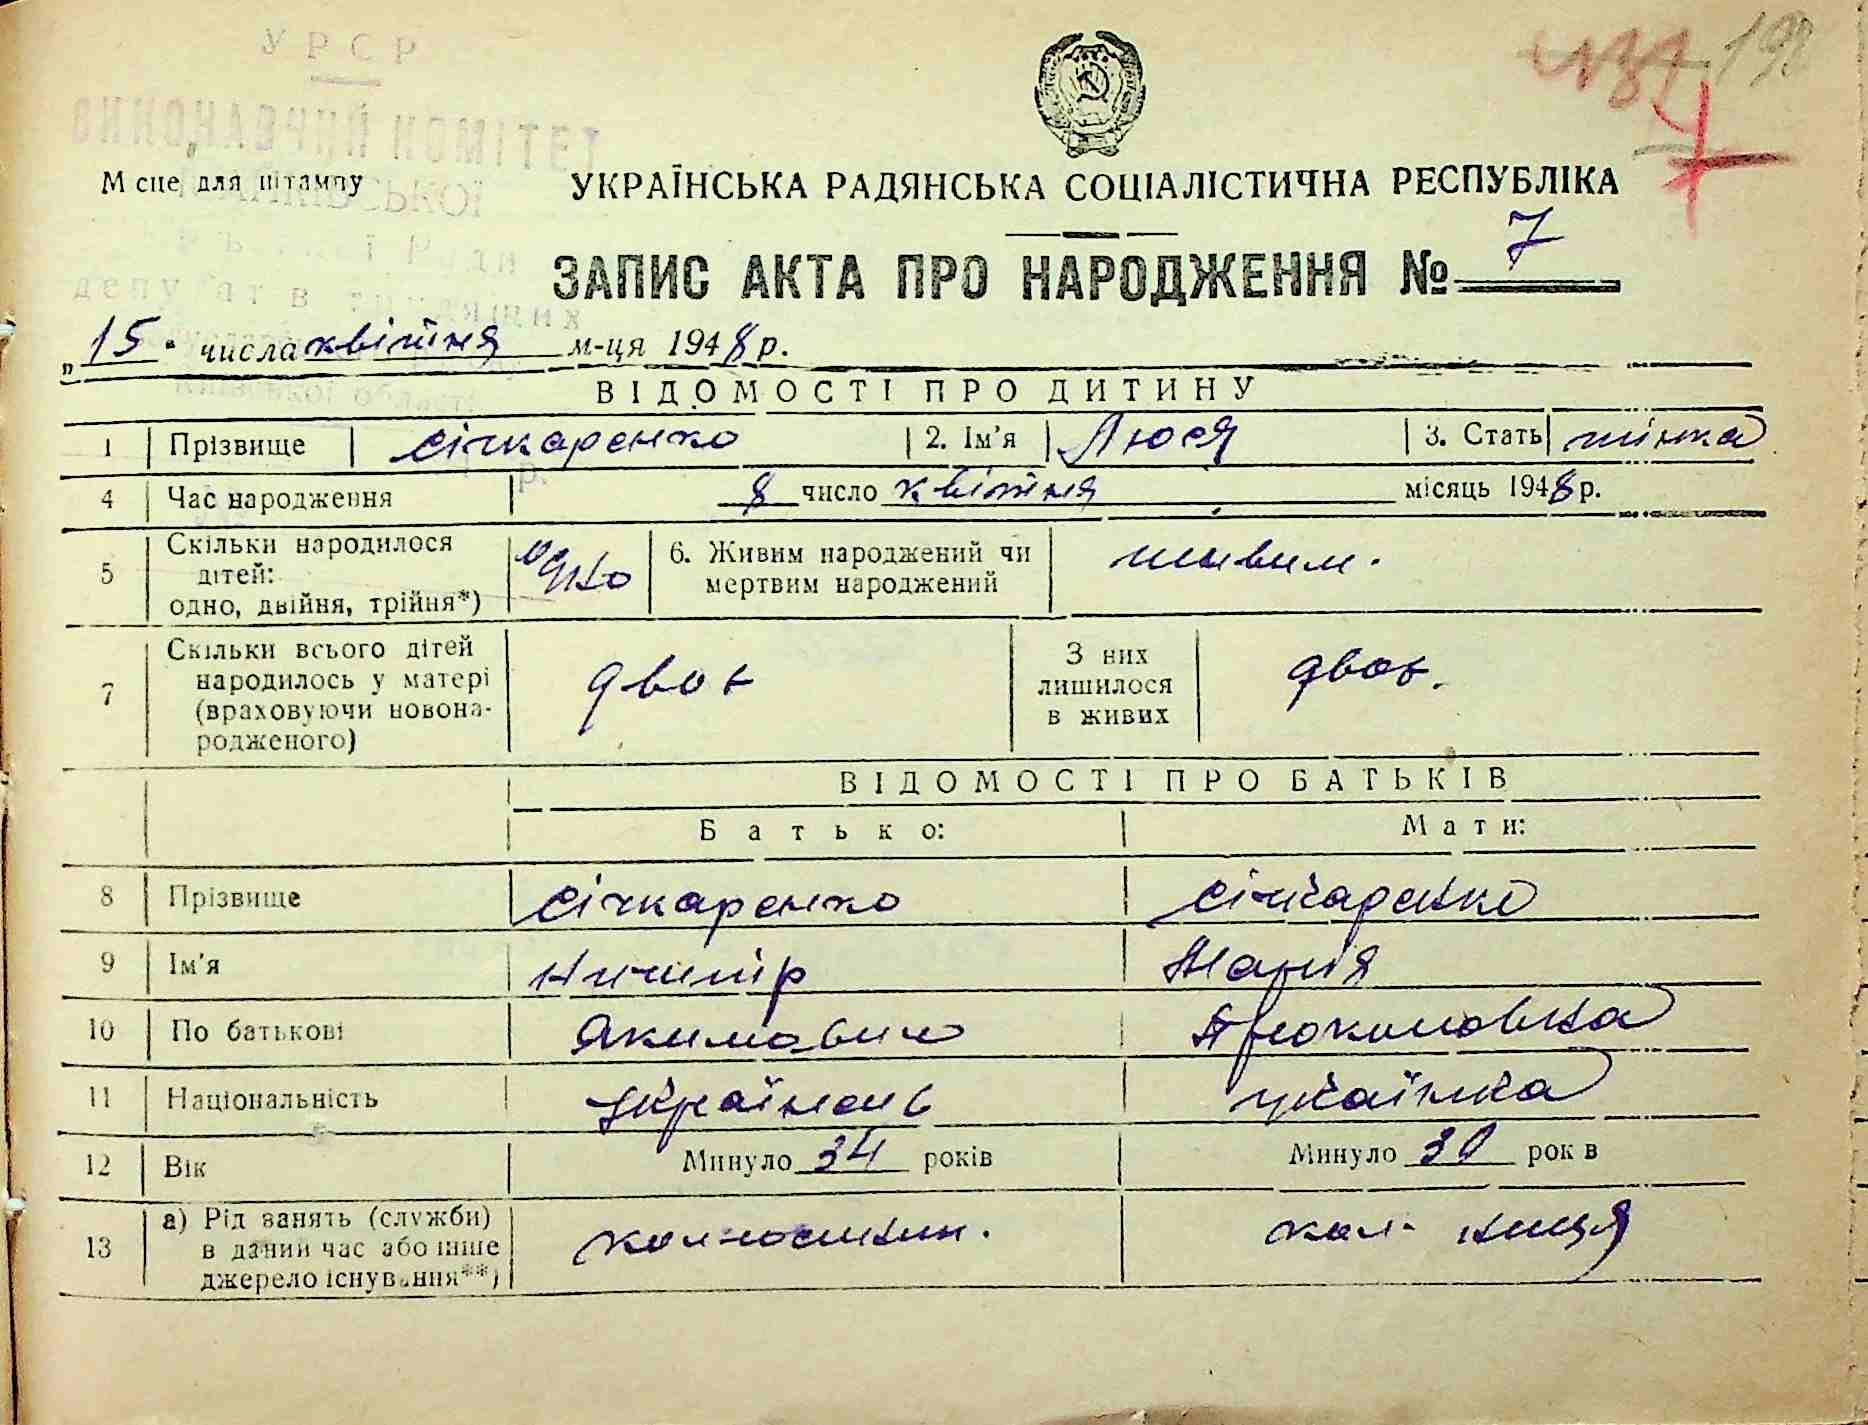 198
УРСР
ВИКОНАВЧИЙ КОМІТЕТ
М сце для штампу
УКРАЇНСЬКА РАДЯНСЬКА СОЦІАЛІСТИЧНА РЕСПУБЛІКА
ЗАПИС АКТА ПРО НАРОДЖЕННЯ № 7
„15" числа квітня м-ця 1948 р.
ВІДОМОСТІ ПРО ДИТИНУ
1 Прізвище Січкаренко 2. Ім'я Люся 3. Стать жінка
4 Час народження 8 число квітня місяць 1948 р.
5 Скільки народилося дітей: одно, двійня, трійня*) одно 6. Живим народжений чи мертвим народжений живим.
7 Скільки всього дітей народилось у матері (враховуючи новонародженого) двоє З них лишилося в живих двоє.
ВІДОМОСТІ ПРО БАТЬКІВ
Батько: Мати:
8 Прізвище Січкаренко Січкаренко
9 Ім'я Ничипір Марія
10 По батькові Якимович Прокоповна
11 Національність Українець українка
12 Вік Минуло 34 років Минуло 30 рок в
13 а) Рід занять (служби) в даний час або інше джерело існування**) колгоспник. кол-ниця